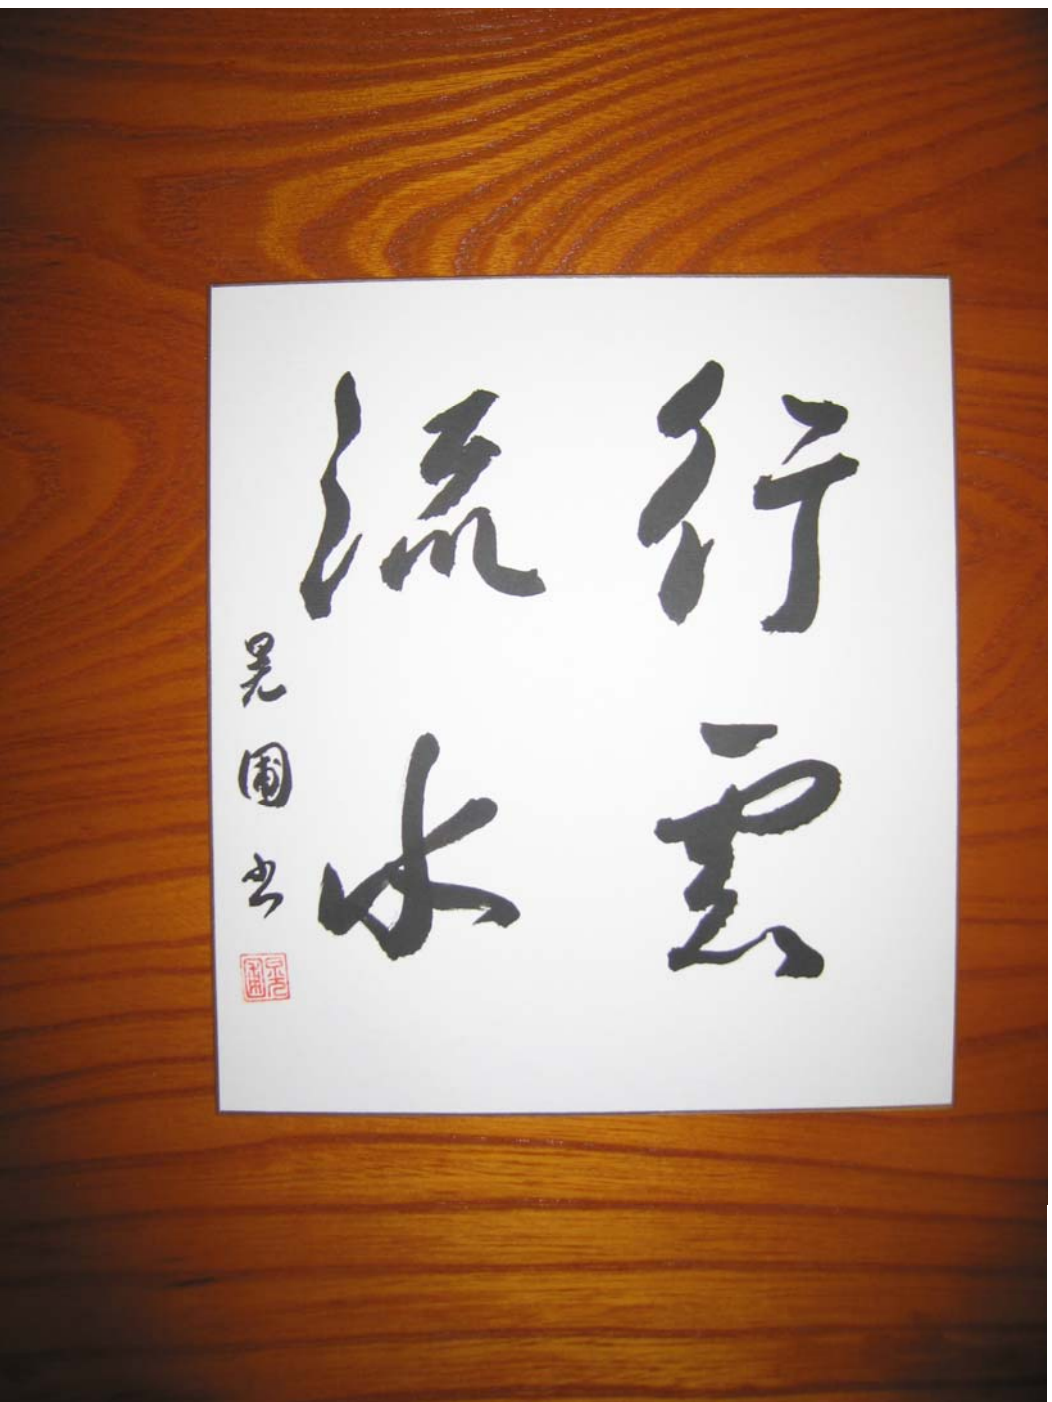 行雲
流水
晃圃書